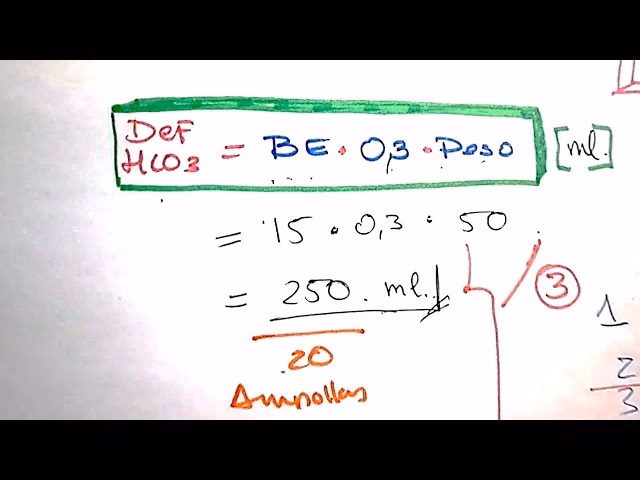 Def HCO3 = BE · 0,3 · Peso [ml.]
= 15 · 0,3 · 50
= 250. ml.
20
Ampollas
3
1
2
3